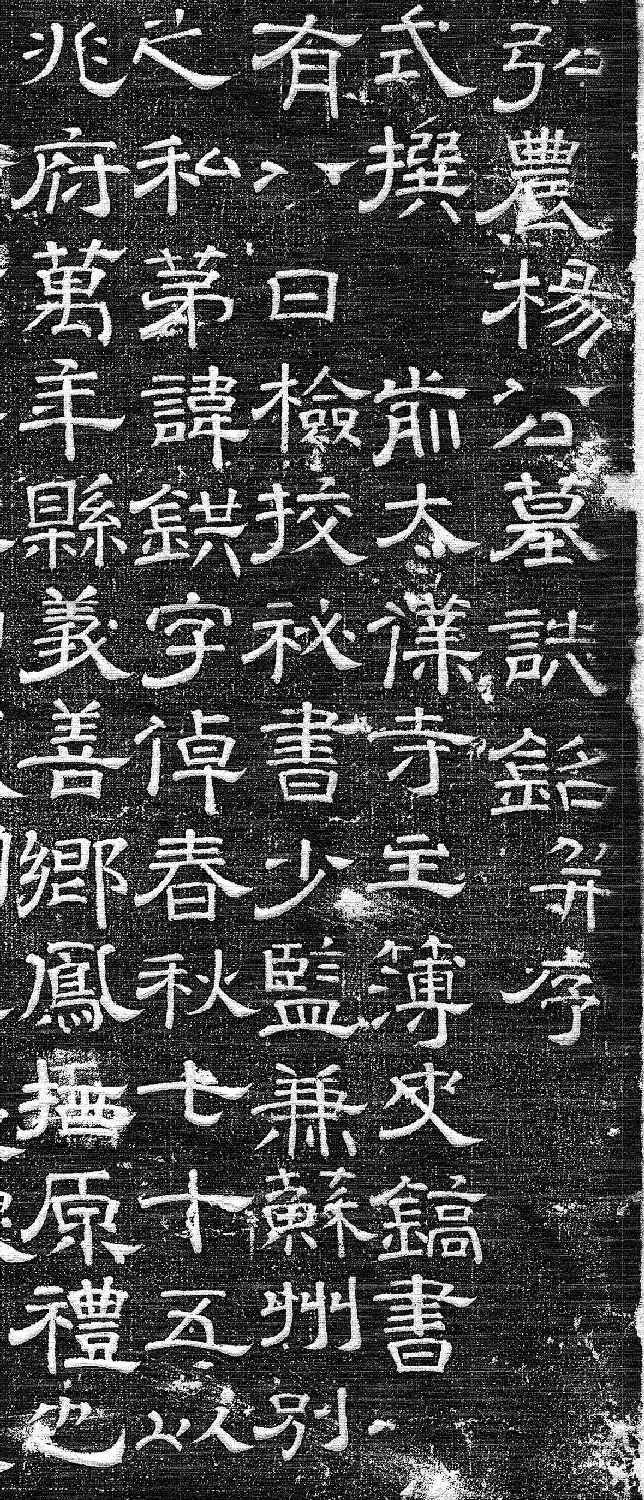 弘農楊公墓誌銘并序
式撰 前太僕寺主簿史鎬書
有公曰檢挍祕書少監兼蘇州別
之私第諱鉷字倬春秋七十五以
兆府萬年縣義善鄉鳳栖原禮也